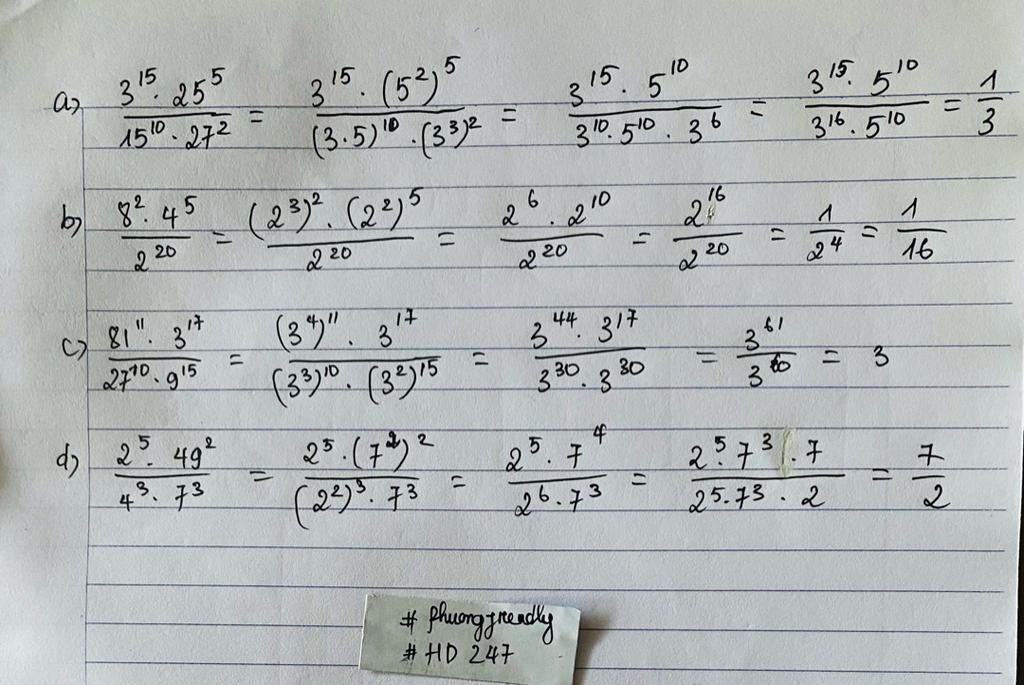 a) \frac{3^{15} \cdot 25^5}{15^{10} \cdot 27^2} = \frac{3^{15} \cdot (5^2)^5}{(3 \cdot 5)^{10} \cdot (3^3)^2} = \frac{3^{15} \cdot 5^{10}}{3^{10} \cdot 5^{10} \cdot 3^6} = \frac{3^{15} \cdot 5^{10}}{3^{16} \cdot 5^{10}} = \frac{1}{3}
b) \frac{8^2 \cdot 4^5}{2^{20}} = \frac{(2^3)^2 \cdot (2^2)^5}{2^{20}} = \frac{2^6 \cdot 2^{10}}{2^{20}} = \frac{2^{16}}{2^{20}} = \frac{1}{2^4} = \frac{1}{16}
c) \frac{81^{11} \cdot 3^{17}}{27^{10} \cdot 9^{15}} = \frac{(3^4)^{11} \cdot 3^{17}}{(3^3)^{10} \cdot (3^2)^{15}} = \frac{3^{44} \cdot 3^{17}}{3^{30} \cdot 3^{30}} = \frac{3^{61}}{3^{60}} = 3
d) \frac{2^5 \cdot 49^2}{4^3 \cdot 7^3} = \frac{2^5 \cdot (7^2)^2}{(2^2)^3 \cdot 7^3} = \frac{2^5 \cdot 7^4}{2^6 \cdot 7^3} = \frac{2^5 \cdot 7^3 \cdot 7}{2^5 \cdot 7^3 \cdot 2} = \frac{7}{2}
# phuongfrendly
# HD 247